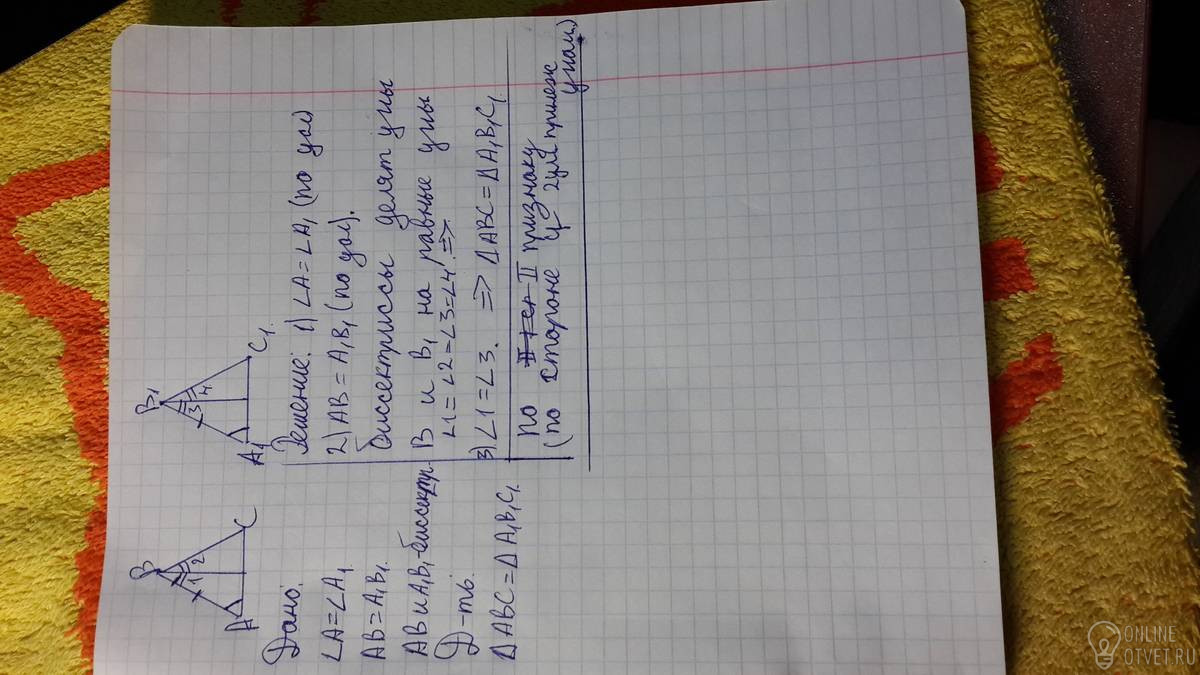 B
1 2
A C
B1
3 4
A1 C1.
Дано:
∠A=∠A1.
AB=A1B1.
AB и A1B1-биссектр.
Д-ть.
ΔABC=ΔA1B1C1.
Решение: 1)∠A=∠A1 (по усл)
2)AB=A1B1 (по усл).
биссектриссы делят углы
B и B1 на равные углы
∠1=∠2=∠3=∠4.=>
3)∠1=∠3. => ΔABC=ΔA1B1C1.
по II признаку
(по стороне и 2ум прилеж
углам.)
ONLINE
OTVET.RU